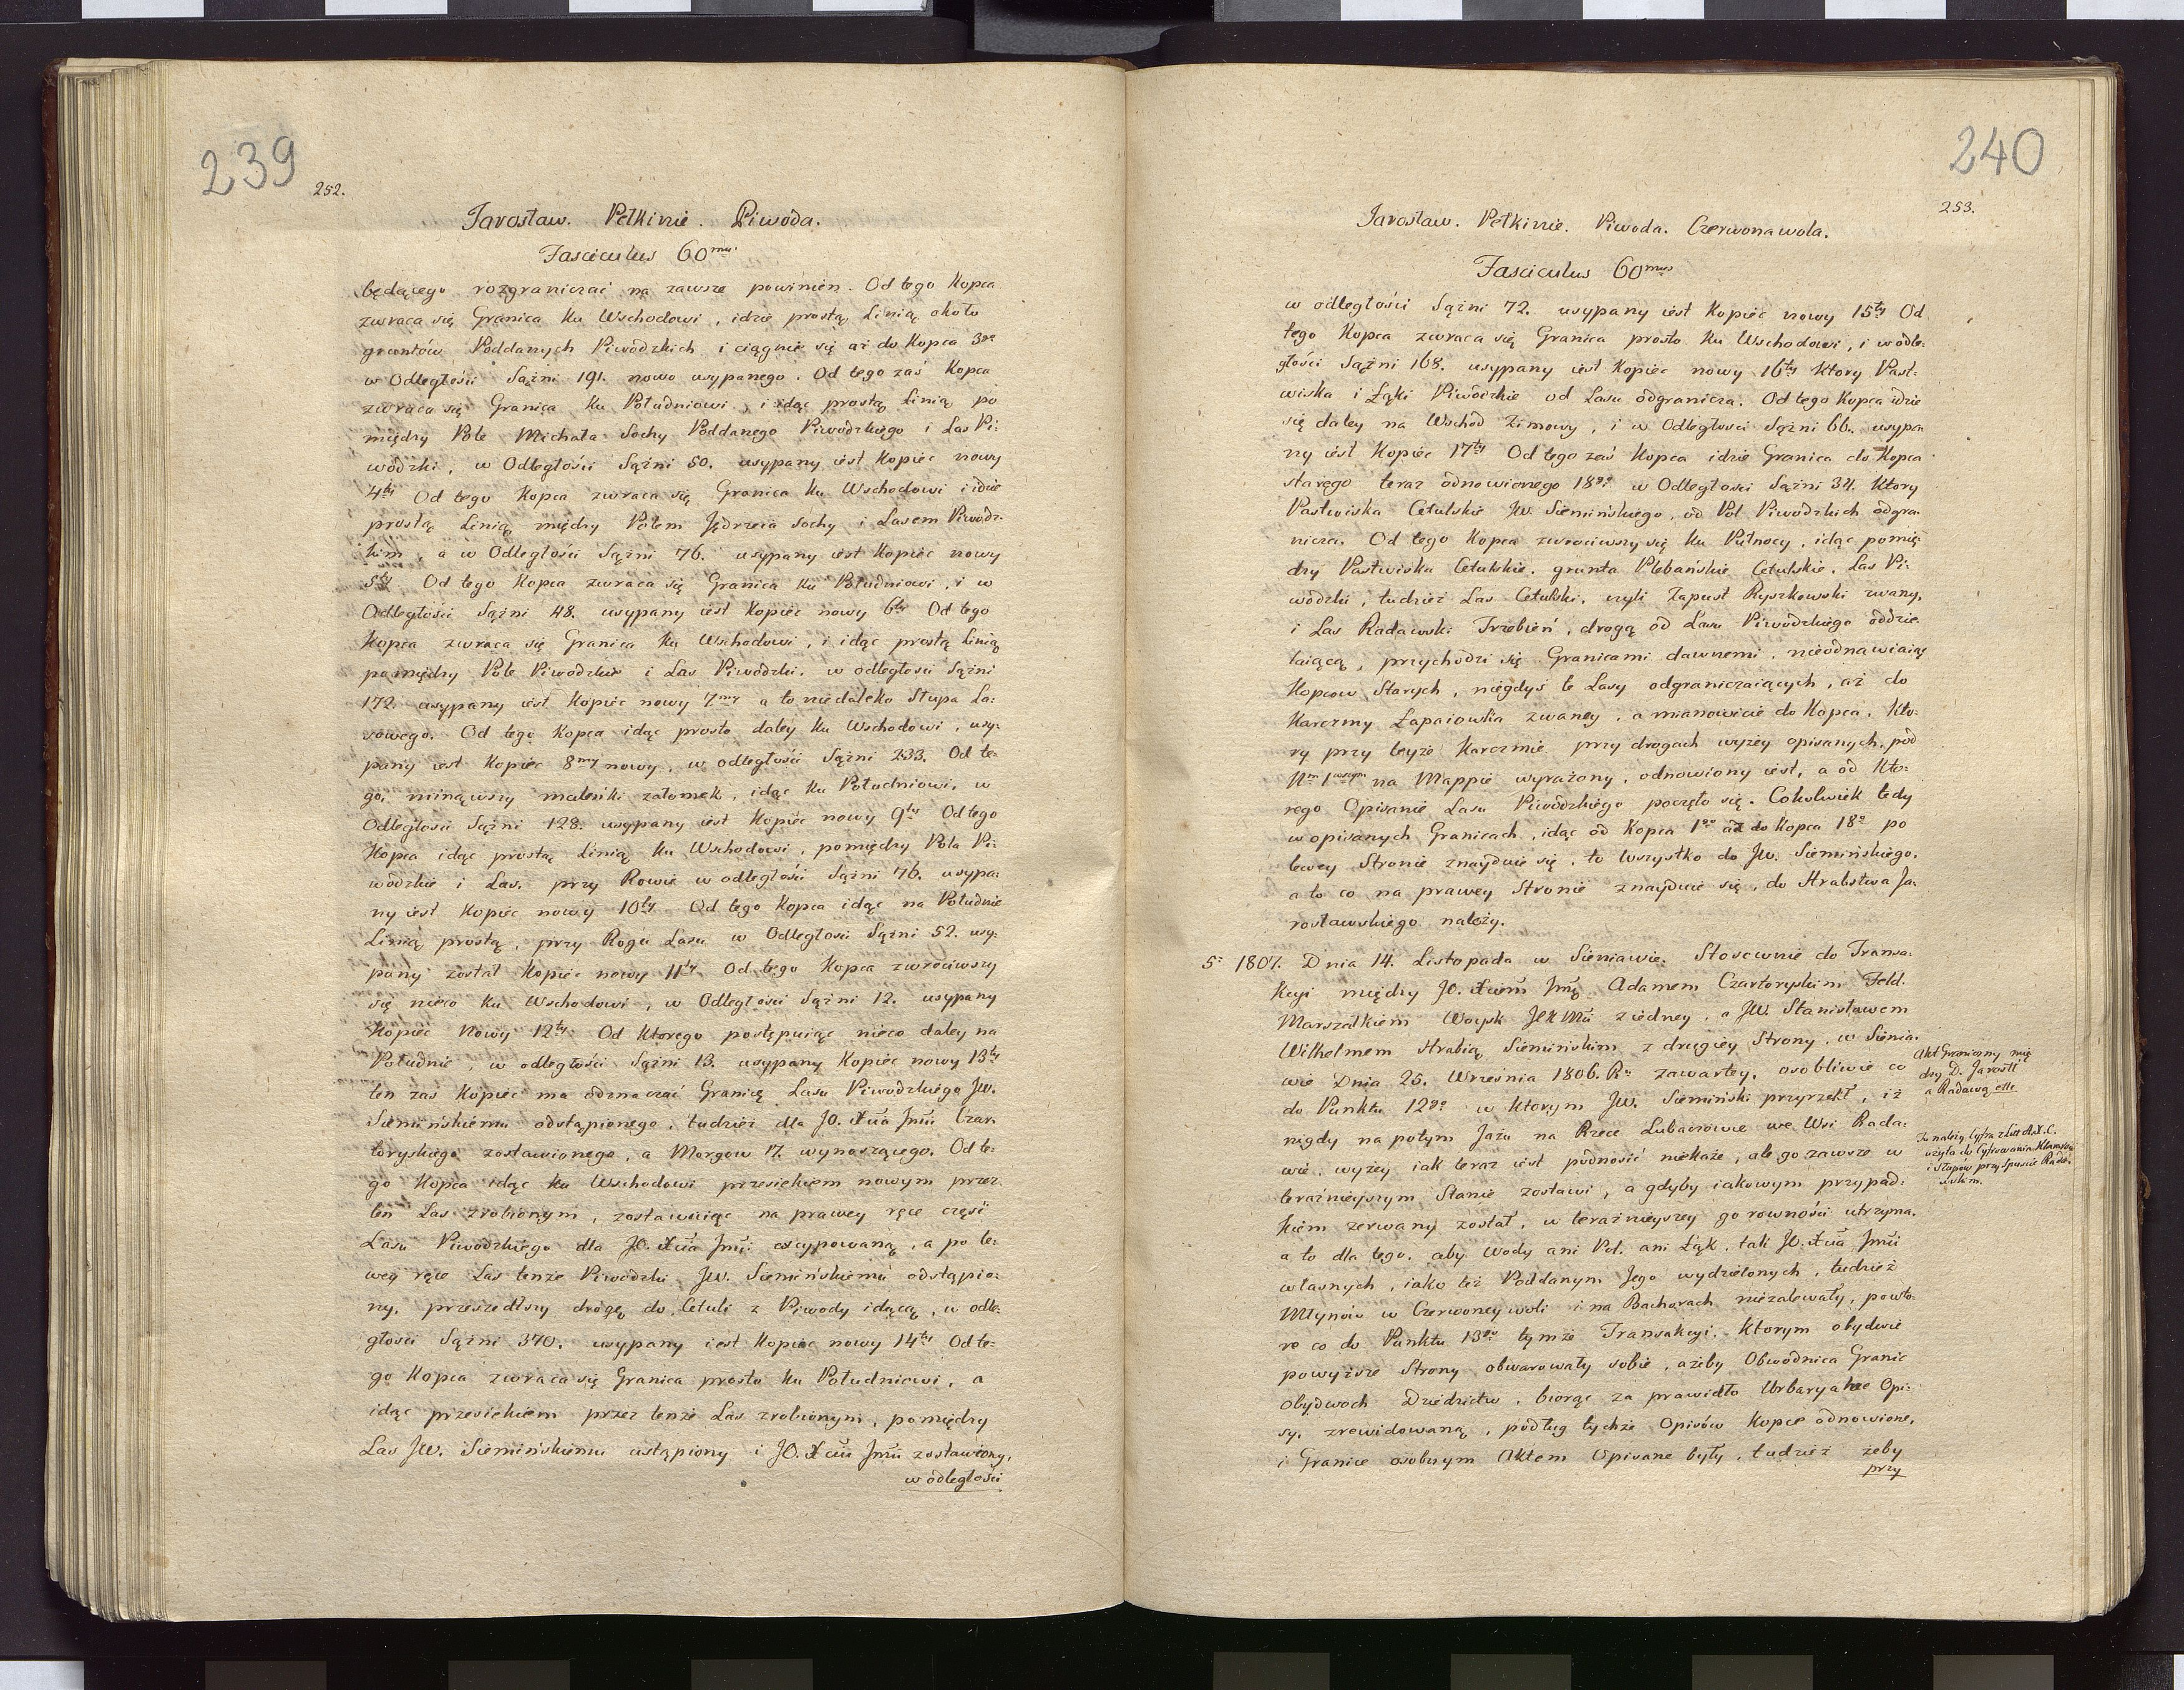 239
252.
Jarosław. Pełkinie. Piwoda.
Fasciculus 60mus
będącego rozgraniczać na zawsze powinien. Od tego Kopca
zwraca się Granica ku Wschodowi, idzie prostą Linią około
gruntów Poddanych Piwodzkich i ciągnie się aż do Kopca 3go
w Odległości Sążni 191. nowo usypanego. Od tego zaś Kopca
zwraca się Granica ku Południowi, i idąc prostą Linią po
między Pole Michała Sochy Poddanego Piwodzkiego i Las Pi:
wodzki, w Odległości Sążni 50. usypany iest Kopiec nowy
4ty Od tego Kopca zwraca się Granica ku Wschodowi i idzie
prostą Linią między Polem Jędrzeia Sochy i Lasem Piwodz:
kim, a w Odległości Sążni 76. usypany iest Kopiec nowy
5ty Od tego Kopca zwraca się Granica ku Południowi, i w
Odległości Sążni 48. usypany iest Kopiec nowy 6ty Od tego
Kopca zwraca się Granica ku Wschodowi, i idąc prostą Linią
pomiędzy Pole Piwodzkie i Las Piwodzki, w odległości Sążni
172. usypany iest Kopiec nowy 7my a to niedaleko Słupa La:
sowego. Od tego Kopca idąc prosto daley ku Wschodowi, usy:
pany iest Kopiec 8my nowy, w odległości Sążni 233. Od te:
go, minąwszy maleńki załomek, idąc ku Południowi, w
Odległości Sążni 128. usypany iest Kopiec nowy 9ty Od tego
Kopca idąc prostą Linią ku Wschodowi, pomiędzy Pola Pi:
wodzkie i Las, przy Rowie w odległości Sążni 76. usypa:
ny iest Kopiec nowy 10ty Od tego Kopca idąc na Południe
Linią prostą, przy Rogu Lasu w Odległości Sążni 52. usy:
pany został Kopiec nowy 11ty Od tego Kopca zwrociwszy
się nieco ku Wschodowi, w Odległości Sążni 12. usypany
Kopiec nowy 12ty Od ktorego postępuiąc nieco daley na
Południe, w odległości Sążni 13. usypany Kopiec nowy 13ty
ten zaś Kopiec ma odznaczać Granicę Lasu Piwodzkiego JW.
Siemińskiemu odstąpionego, tudzież dla JO. Xcia Jmci Czar:
toryskiego zostawionego, a Morgow 17. wynoszącego. Od te:
go Kopca idąc ku Wschodowi przesiekiem nowym przez
ten Las zrobionym, zostawuiąc na prawey ręce część
Lasu Piwodzkiego dla JO. Xcia Jmci excypowaną, a po le:
wey ręce Las tenże Piwodzki JW. Siemińskiemu odstąpio:
ny, przeszedłszy drogę do Cetuli z Piwody idącą, w odle:
głości Sążni 370. usypany iest Kopiec nowy 14ty Od te:
go Kopca zwraca się Granica prosto ku Południowi, a
idąc przesiekiem przez tenże Las zrobionym, pomiędzy
Las JW. Siemińskiemu ustąpiony i JO. Xciu Jmci zostawiony,
w odległości
240
253.
Jarosław. Pełkinie. Piwoda. Czerwonawola.
Fasciculus 60mus
w odległości Sążni 72. usypany iest Kopiec nowy 15ty Od
tego Kopca zwraca się Granica prosto ku Wschodowi, i w odle:
głości Sążni 168. usypany iest Kopiec nowy 16ty ktory Past:
wiska i Łąki Piwodzkie od Lasu odgranicza. Od tego Kopca idzie
się daley na Wschod Zimowy, i w Odległości Sążni 66. usypa:
ny iest Kopiec 17ty Od tego zaś Kopca idzie Granica do Kopca
starego teraz odnowionego 18go w Odległości Sążni 34. ktory
Pastwiska Cetulskie JW. Siemińskiego, od Pol Piwodzkich odgra:
nicza. Od tego Kopca zwrociwszy się ku Pułnocy, idąc pomię:
dzy Pastwiska Cetulskie, grunta Plebańskie Cetulskie, Las Pi:
wodzki, tudzież Las Cetulski, czyli Zapust Ryszkowski zwany,
i Las Radawski Trzebień, drogą od Lasu Piwodzkiego oddzie:
laiącą, przychodzi się Granicami dawnemi, nieodnawiaiąc
Kopcow Starych, niegdyś te Lasy odgraniczaiących, aż do
Karczmy Łapaiowka zwaney, a mianowicie do Kopca, kto:
ry przy teyże Karczmie przy drogach wyżey opisanych, pod
Nm 1wszym na Mappie wyrażony, odnowiony iest, a od kto:
rego Opisanie Lasu Piwodzkiego poczęło się. Cokolwiek tedy
w opisanych Granicach, idąc od Kopca 1go aż do Kopca 18o po
lewey Stronie znayduie się, to wszystko do JW. Siemińskiego,
a to co na prawey Stronie znayduie się, do Hrabstwa Ja:
rosławskiego należy.
5o 1807. Dnia 14. Listopada w Sieniawie. Stosownie do Transa:
kcyi między JO. Xciem Jmcią Adamem Czartoryskim Feld.
Marszałkiem Woysk JCKMci z iedney, a JW. Stanisławem
Wilhelmem Hrabią Siemińskim z drugiey Strony, w Sienia:
wie Dnia 25. Września 1806. Ru zawartey, osobliwie co
do Punktu 12go w ktorym JW. Siemiński przyrzekł, iż
nigdy na potym Jazu na Rzece Lubaczowce we Wsi Rada:
wie, wyżey iak teraz iest podnosić niekaże, ale go zawsze w
teraźnieyszym Stanie zostawi, a gdyby iakowym przypad:
kiem zerwany został, w teraźnieyszey go rowności utrzyma,
a to dla tego, aby wody ani Pol, ani Łąk, tak JO. Xcia Jmci
własnych, iako też Poddanym Jego wydzielonych, tudzież
Młynów w Czerwoneywoli i na Bachorach niezalewały, powto:
re co do Punktu 13go tymże Transakcyi, ktorym obydwie
powyższe Strony obwarowały sobie, ażeby Obwodnica Granic
obydwoch Dziedzictw, biorąc za prawidło Urbaryalne Opi:
sy, zrewidowaną, podług tychże Opisów Kopce odnowione,
i Granice osobnym Aktem Opisane były, tudzież żeby
przy
Akt Graniczny mię
dzy D. Jarosł
a Radawą etc
Tu należy Cyfra z Liter A.X.C.
użyta do Cyfrowania
i Słupów przy Spuście Rada:
wskim.